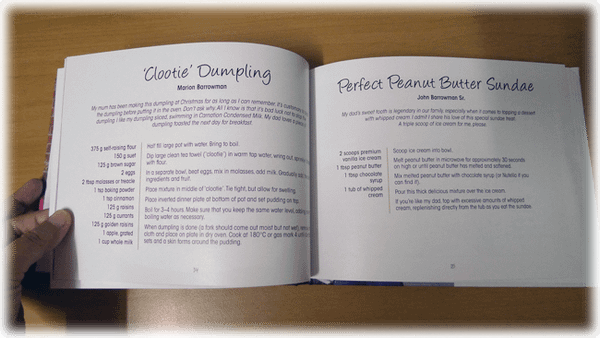 'Clootie' Dumpling
Marion Barrowman
My mum has been making this dumpling at Christmas for as long as I can remember. It's customary to
the dumpling before putting it in the oven. Don't ask why. All I know is that it's bad luck not to
dumpling. I like my dumpling sliced, swimming in Carnation Condensed Milk. My dad loves a piece of
dumpling toasted the next day for breakfast.
375 g self-raising flour
150 g suet
125 g brown sugar
2 eggs
2 tbsp molasses or treacle
1 tsp baking powder
1 tsp cinnamon
125 g raisins
125 g currants
125 g golden raisins
1 apple, grated
1 cup whole milk
Half fill large pot with water. Bring to boil.
Dip large clean tea towel ('clootie') in warm tap water, wring out,
with flour.
In a separate bowl, beat eggs, mix in molasses, add milk. Gradually add
ingredients and fruit.
Place mixture in middle of 'clootie'. Tie tight, but allow for swelling.
Place inverted dinner plate at bottom of pot and set pudding on top.
Boil for 3–4 hours. Make sure that you keep the same water level, adding
boiling water as necessary.
When dumpling is done (a fork should come out moist but not wet), remove
cloth and place on plate in dry oven. Cook at 180°C or gas mark 4 until
sets and a skin forms around the pudding.
Perfect Peanut Butter Sundae
John Barrowman Sr.
My dad's sweet tooth is legendary in our family, especially when it comes to topping a dessert
with whipped cream. I admit I share his love of this special sundae treat.
A triple scoop of ice cream for me, please.
2 scoops premium
vanilla ice cream
1 tbsp peanut butter
1 tbsp chocolate
syrup
1 tub of whipped
cream
Scoop ice cream into bowl.
Melt peanut butter in microwave for approximately 30 seconds
on high or until peanut butter has melted and softened.
Mix melted peanut butter with chocolate syrup (or Nutella if you
can find it).
Pour this thick delicious mixture over the ice cream.
If you're like my dad, top with excessive amounts of whipped
cream, replenishing directly from the tub as you eat the sundae.